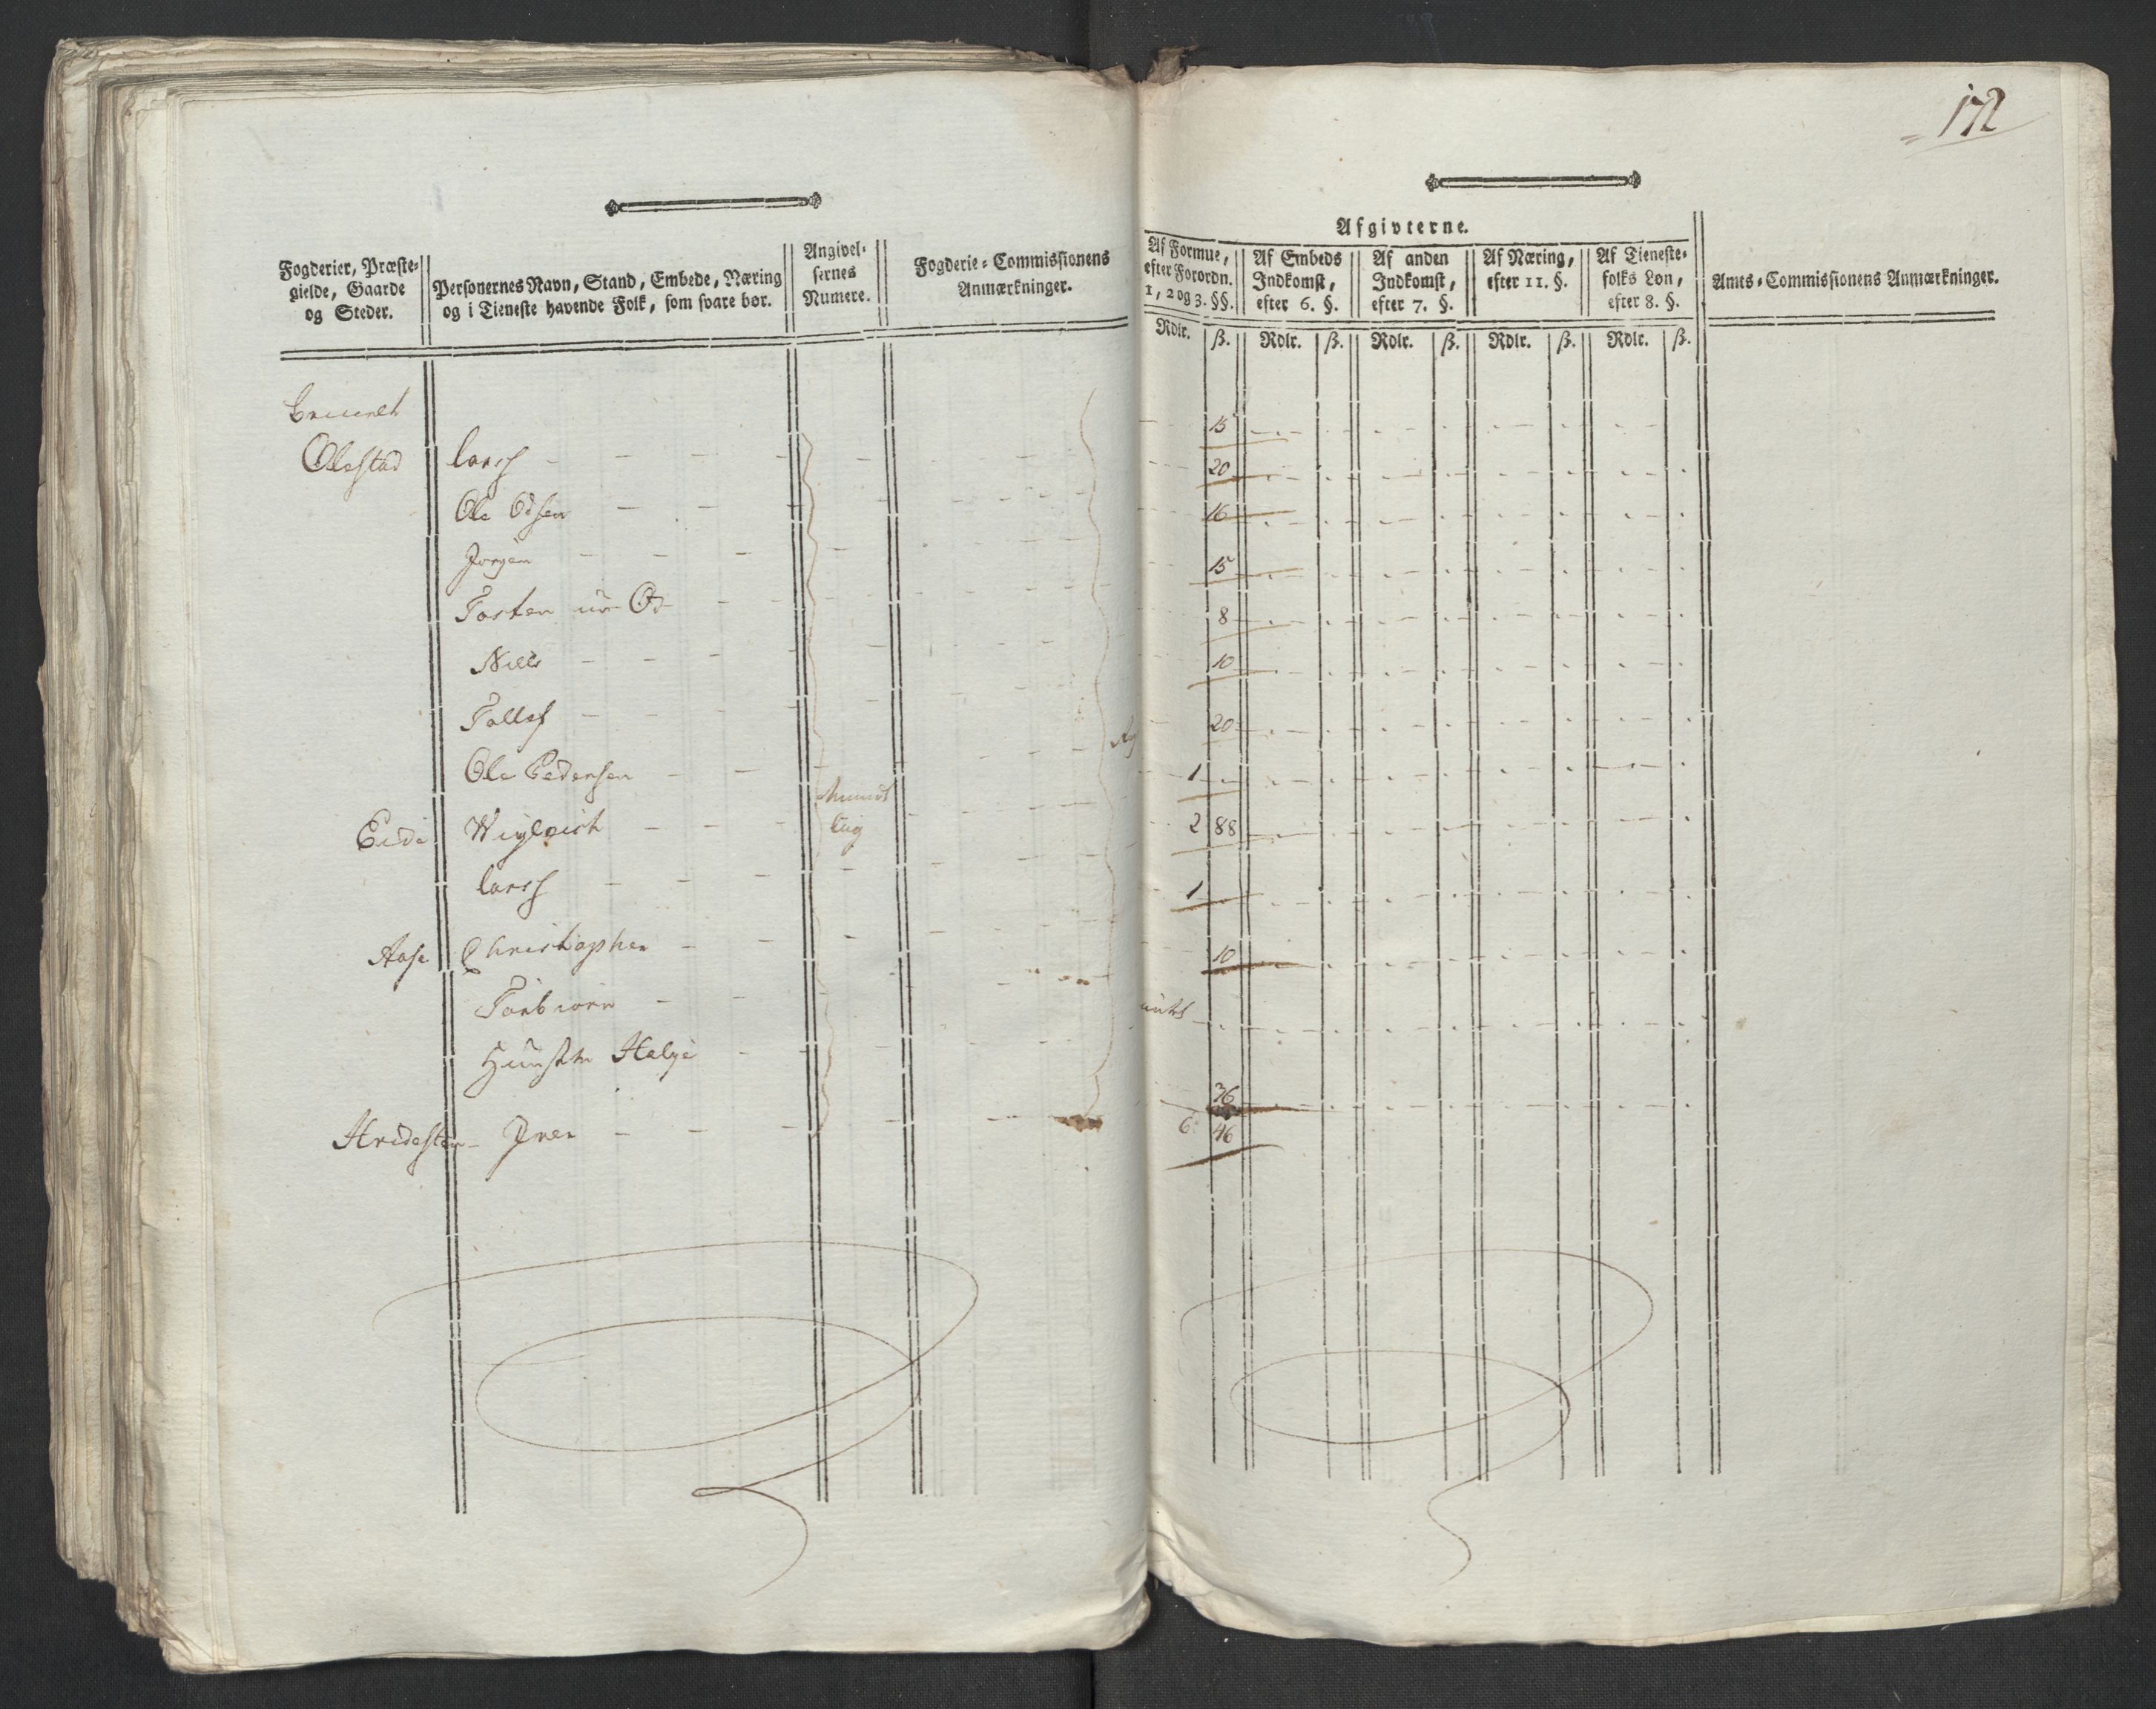 172
Fogderier, Præste-
gielde, Gaarde
og Steder.
Personernes Navn, Stand, Embede, Næring
og i Tieneste havende Folk, som svare bør.
Angivel-
sernes
Numere.
Fogderie-Commissionens
Anmærkninger.
Afgivterne.
Af Formue,
efter Forordn.
1, 2 og 3. §§.
Af Embeds
Indkomst,
efter 6. §.
Af anden
Indkomst,
efter 7. §.
Af Næring,
efter 11. §.
Af Tieneste-
folks Løn,
efter 8. §.
Amts-Commissionens Anmærkninger.
Rdlr. ß. Rdlr. ß. Rdlr. ß. Rdlr. ß. Rdlr. ß.
Olestad Larss - 15
Ole Odsen - 20
Jørgen - 16
Tosten - 15
Niels - 8
Tollef - 10
Ole Pedersen - 20
Eide - 1
Mundt
lig
Larss - 2 88
Aase Christopher - 1
Torbiørn - 10
Helge
Iver - 36
6 46